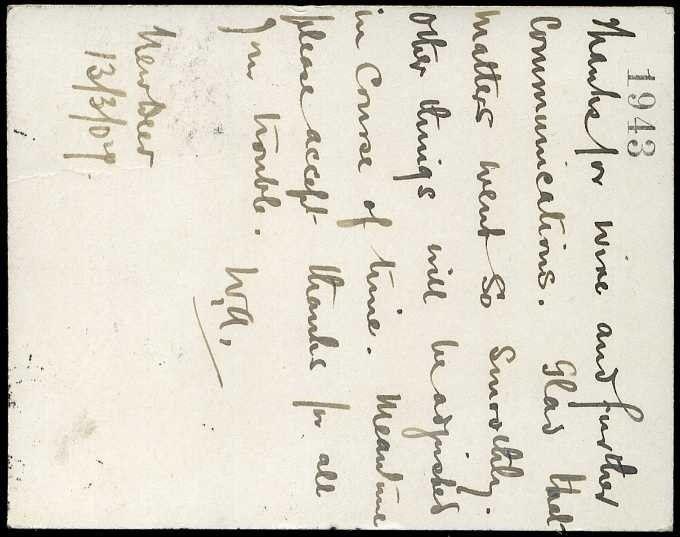 1943
Thanks for wire and further
Communications. Glad that
matters went so smoothly.
Other things will be adjusted
in Course of time. Meantime
please accept thanks for all
your trouble.
W.A.
New Deer
13/3/07.